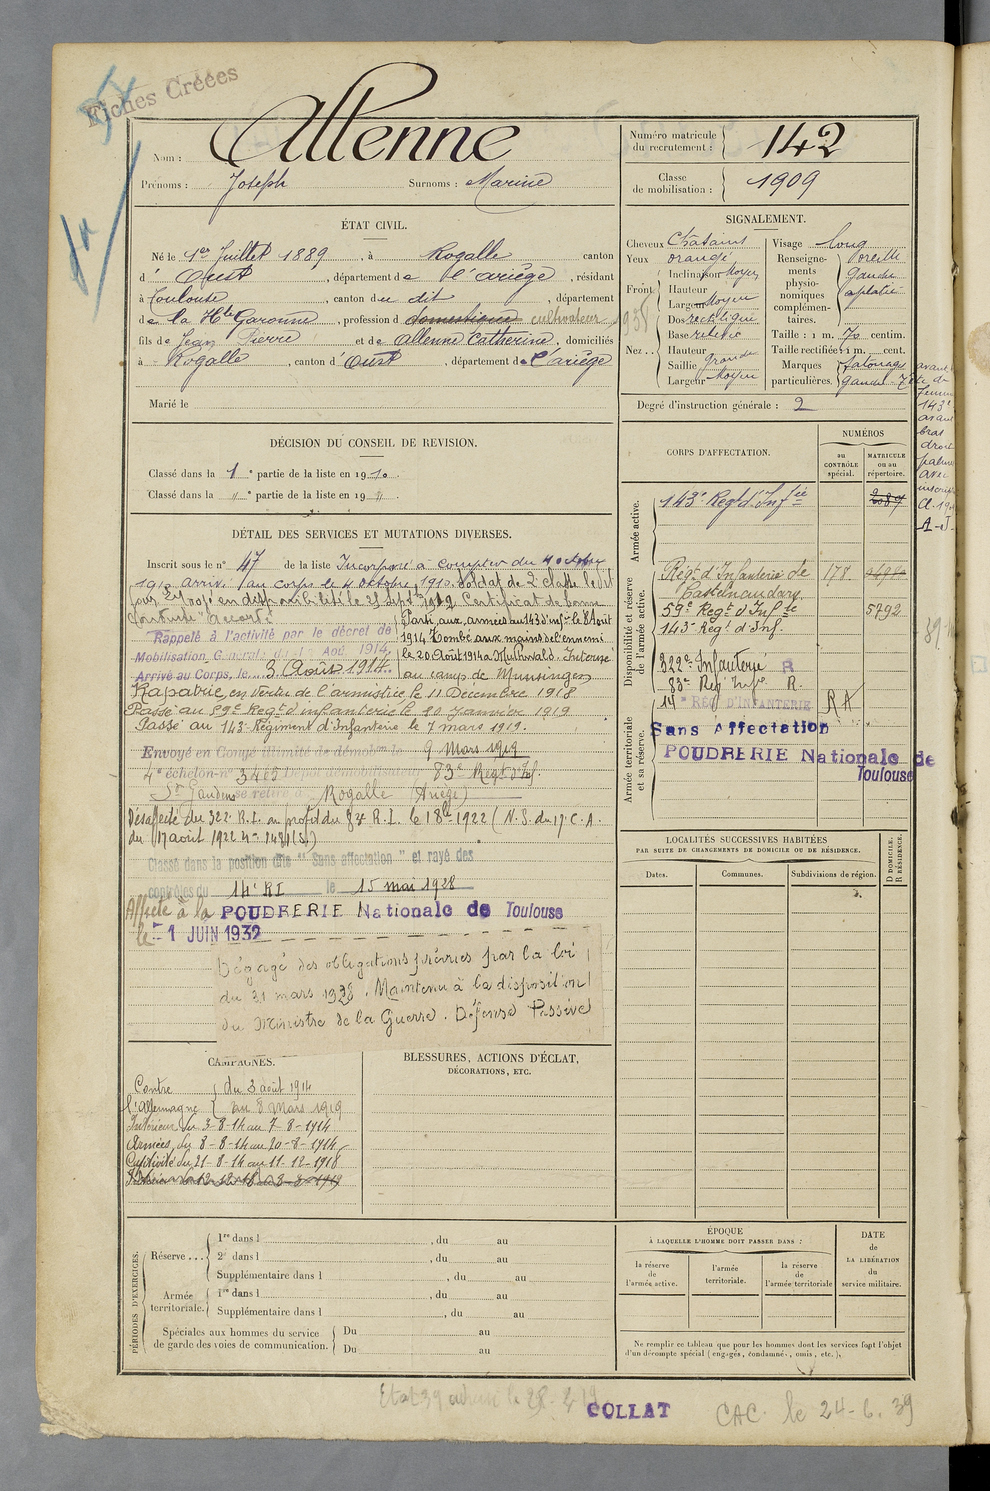 Fiches Créées
Nom : Allenne
Prénoms : Joseph Surnoms : Marine
Numéro matricule du recrutement : 142
Classe de mobilisation : 1909
ÉTAT CIVIL.
Né le 1er Juillet 1889, à Rogalle canton
d'Oust, département de l'ariège, résidant
à Toulouse, canton du dit, département
de la Hte Garonne, profession d domestique cultivateur 1938
fils de Jean Pierre et de Allenne Catherine, domiciliés
à Rogalle, canton d'Oust, département de l'ariège
Marié le
SIGNALEMENT.
Cheveux Chatains
Yeux orangé
Front Inclinaison Moyen
Hauteur
Largeur Moyen
Nez Dos rectiligne
Base relevée
Hauteur
Saillie grande
Largeur Moyen
Visage long
Renseignements physionomiques complémentaires. oreille gauche aplatie
Taille : 1 m. 70 centim.
Taille rectifiée : 1 m. cent.
Marques particulières. tatouage
Degré d'instruction générale : 2
DÉCISION DU CONSEIL DE REVISION.
Classé dans la 1e partie de la liste en 1910.
Classé dans la " e partie de la liste en 19 "
DÉTAIL DES SERVICES ET MUTATIONS DIVERSES.
Inscrit sous le n° 47 de la liste Incorporé à compter du 4 octobre
1910 arrivé au corps le 4 octobre 1910 Soldat de 2e classe le dit
jour. Envoyé en disponibilité le 25 Septbre 1912 Certificat de bonne
conduite "accordé"
Rappelé à l'activité par le décret de
Mobilisation Générale du 1 Aoû 1914.
Arrivé au Corps, le 3 Août 1914.
Parti aux armées au 143 d'infie le 8 Août
1914 Tombé aux mains de l'ennemi
le 20 Août 1914 à Muhlwald. Interné
au camp de Munsingen
Rapatrié en vertu de l'armistice le 11 Décembre 1918
Passé au 59e Regt d'infanterie le 20 Janvier 1919
Passé au 143e Régiment d'Infanterie le 7 mars 1919.
Envoyé en Congé illimité de démobon le 9 Mars 1919
4e échelon n° 3465 Dépôt démobilisateur 83e Regt d'Inf.
St Gaudens se retire à Rogalle (Ariège)
Désaffecté du 322 R.I. au profit du 83e R.I. le 18 1922 (N.S. du 17e C.A.
du 17 août 1922
Classé dans la position dite "Sans affectation" et rayé des
contrôles du 14e RI le 15 mai 1928
Affecté à la POUDRERIE Nationale de Toulouse
le 1 JUIN 1932
Dégagé des obligations prévues par la loi
du 31 mars 1928. Maintenu à la disposition
du Ministre de la Guerre. Défense Passive
CORPS D'AFFECTATION.
NUMÉROS
au CONTRÔLE spécial.
MATRICULE ou au répertoire.
Armée active.
143e Regt d'Infie
Disponibilité et réserve de l'armée active.
Régt d'Infanterie de Castelnaudary 178
59e Regt d'Infie 5792
143e Regt d'Inf.
322e Infanterie R
83e Reg Infie R.
Armée territoriale et sa réserve.
14e RÉG D'INFANTERIE RA
Sans Affectation
POUDRERIE Nationale de
Toulouse
LOCALITÉS SUCCESSIVES HABITÉES
PAR SUITE DE CHANGEMENTS DE DOMICILE OU DE RÉSIDENCE.
Dates. Communes. Subdivisions de région.
D DOMICILE. R RÉSIDENCE.
CAMPAGNES.
Contre l'Allemagne { du 3 août 1914
au 8 Mars 1919
Intérieur du 3-8-14 au 7-8-1914
Armées, du 8-8-14 au 20-8-1914
Captivité du 21-8-14 au 11-12-1918
BLESSURES, ACTIONS D'ÉCLAT,
DÉCORATIONS, ETC.
PÉRIODES D'EXERCICES.
Réserve
1re dans l , du au
2e dans l , du au
Supplémentaire dans l , du au
Armée territoriale.
1re dans l , du au
Supplémentaire dans l , du au
Spéciales aux hommes du service de garde des voies de communication.
Du au
Du au
ÉPOQUE
À LAQUELLE L'HOMME DOIT PASSER DANS :
la réserve de l'armée active.
l'armée territoriale.
la réserve de l'armée territoriale
DATE de LA LIBÉRATION du service militaire.
Ne remplir ce tableau que pour les hommes dont les services font l'objet
d'un décompte spécial (engagés, condamnés, omis, etc.).
COLLAT
CAC. le 24-6.39